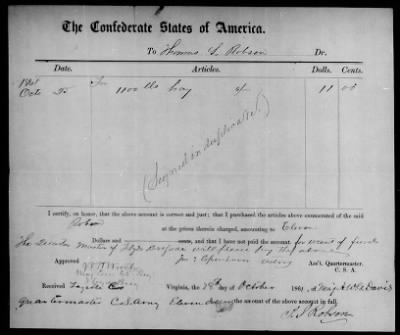 The Confederate States of America.
To Thomas S. Robson Dr.
Date. Articles. Dolls. Cents.
1861
Oct For 1100 lbs hay 11 00
(Signed in duplicate.)
I certify, on honor, that the above account is correct and just; that I purchased the articles above enumerated of the said
Robson at the prices therein charged, amounting to Eleven
Dollars and cents, and that I have not paid the account for want of funds
The Quarter Master of Floyds Brigade will please pay the above
Approved Ass't. Quartermaster.
C. S. A.
Received Virginia, the October 1861, of
Quartermaster C.S. Army Eleven the amount of the above account in full.
Robson